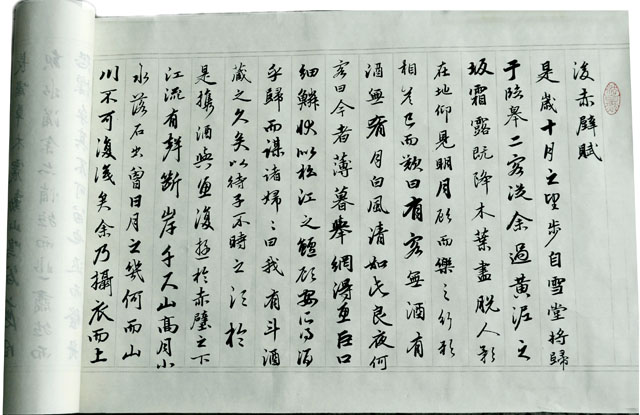 後赤壁賦
是歲十月之望步自雪堂將歸
于臨皋二客從余過黃泥之
坂霜露既降木葉盡脫人影
在地仰見明月顧而樂之行歌
相答已而歎曰有客無酒有
酒無肴月白風清如此良夜何
客曰今者薄暮舉網得魚巨口
細鱗狀似松江之鱸顧安所得酒
乎歸而謀諸婦々曰我有斗酒
藏之久矣以待子不時之須於
是攜酒與魚復遊於赤壁之下
江流有聲斷岸千尺山高月小
水落石出曾日月之幾何而山
川不可復識矣余乃攝衣而上